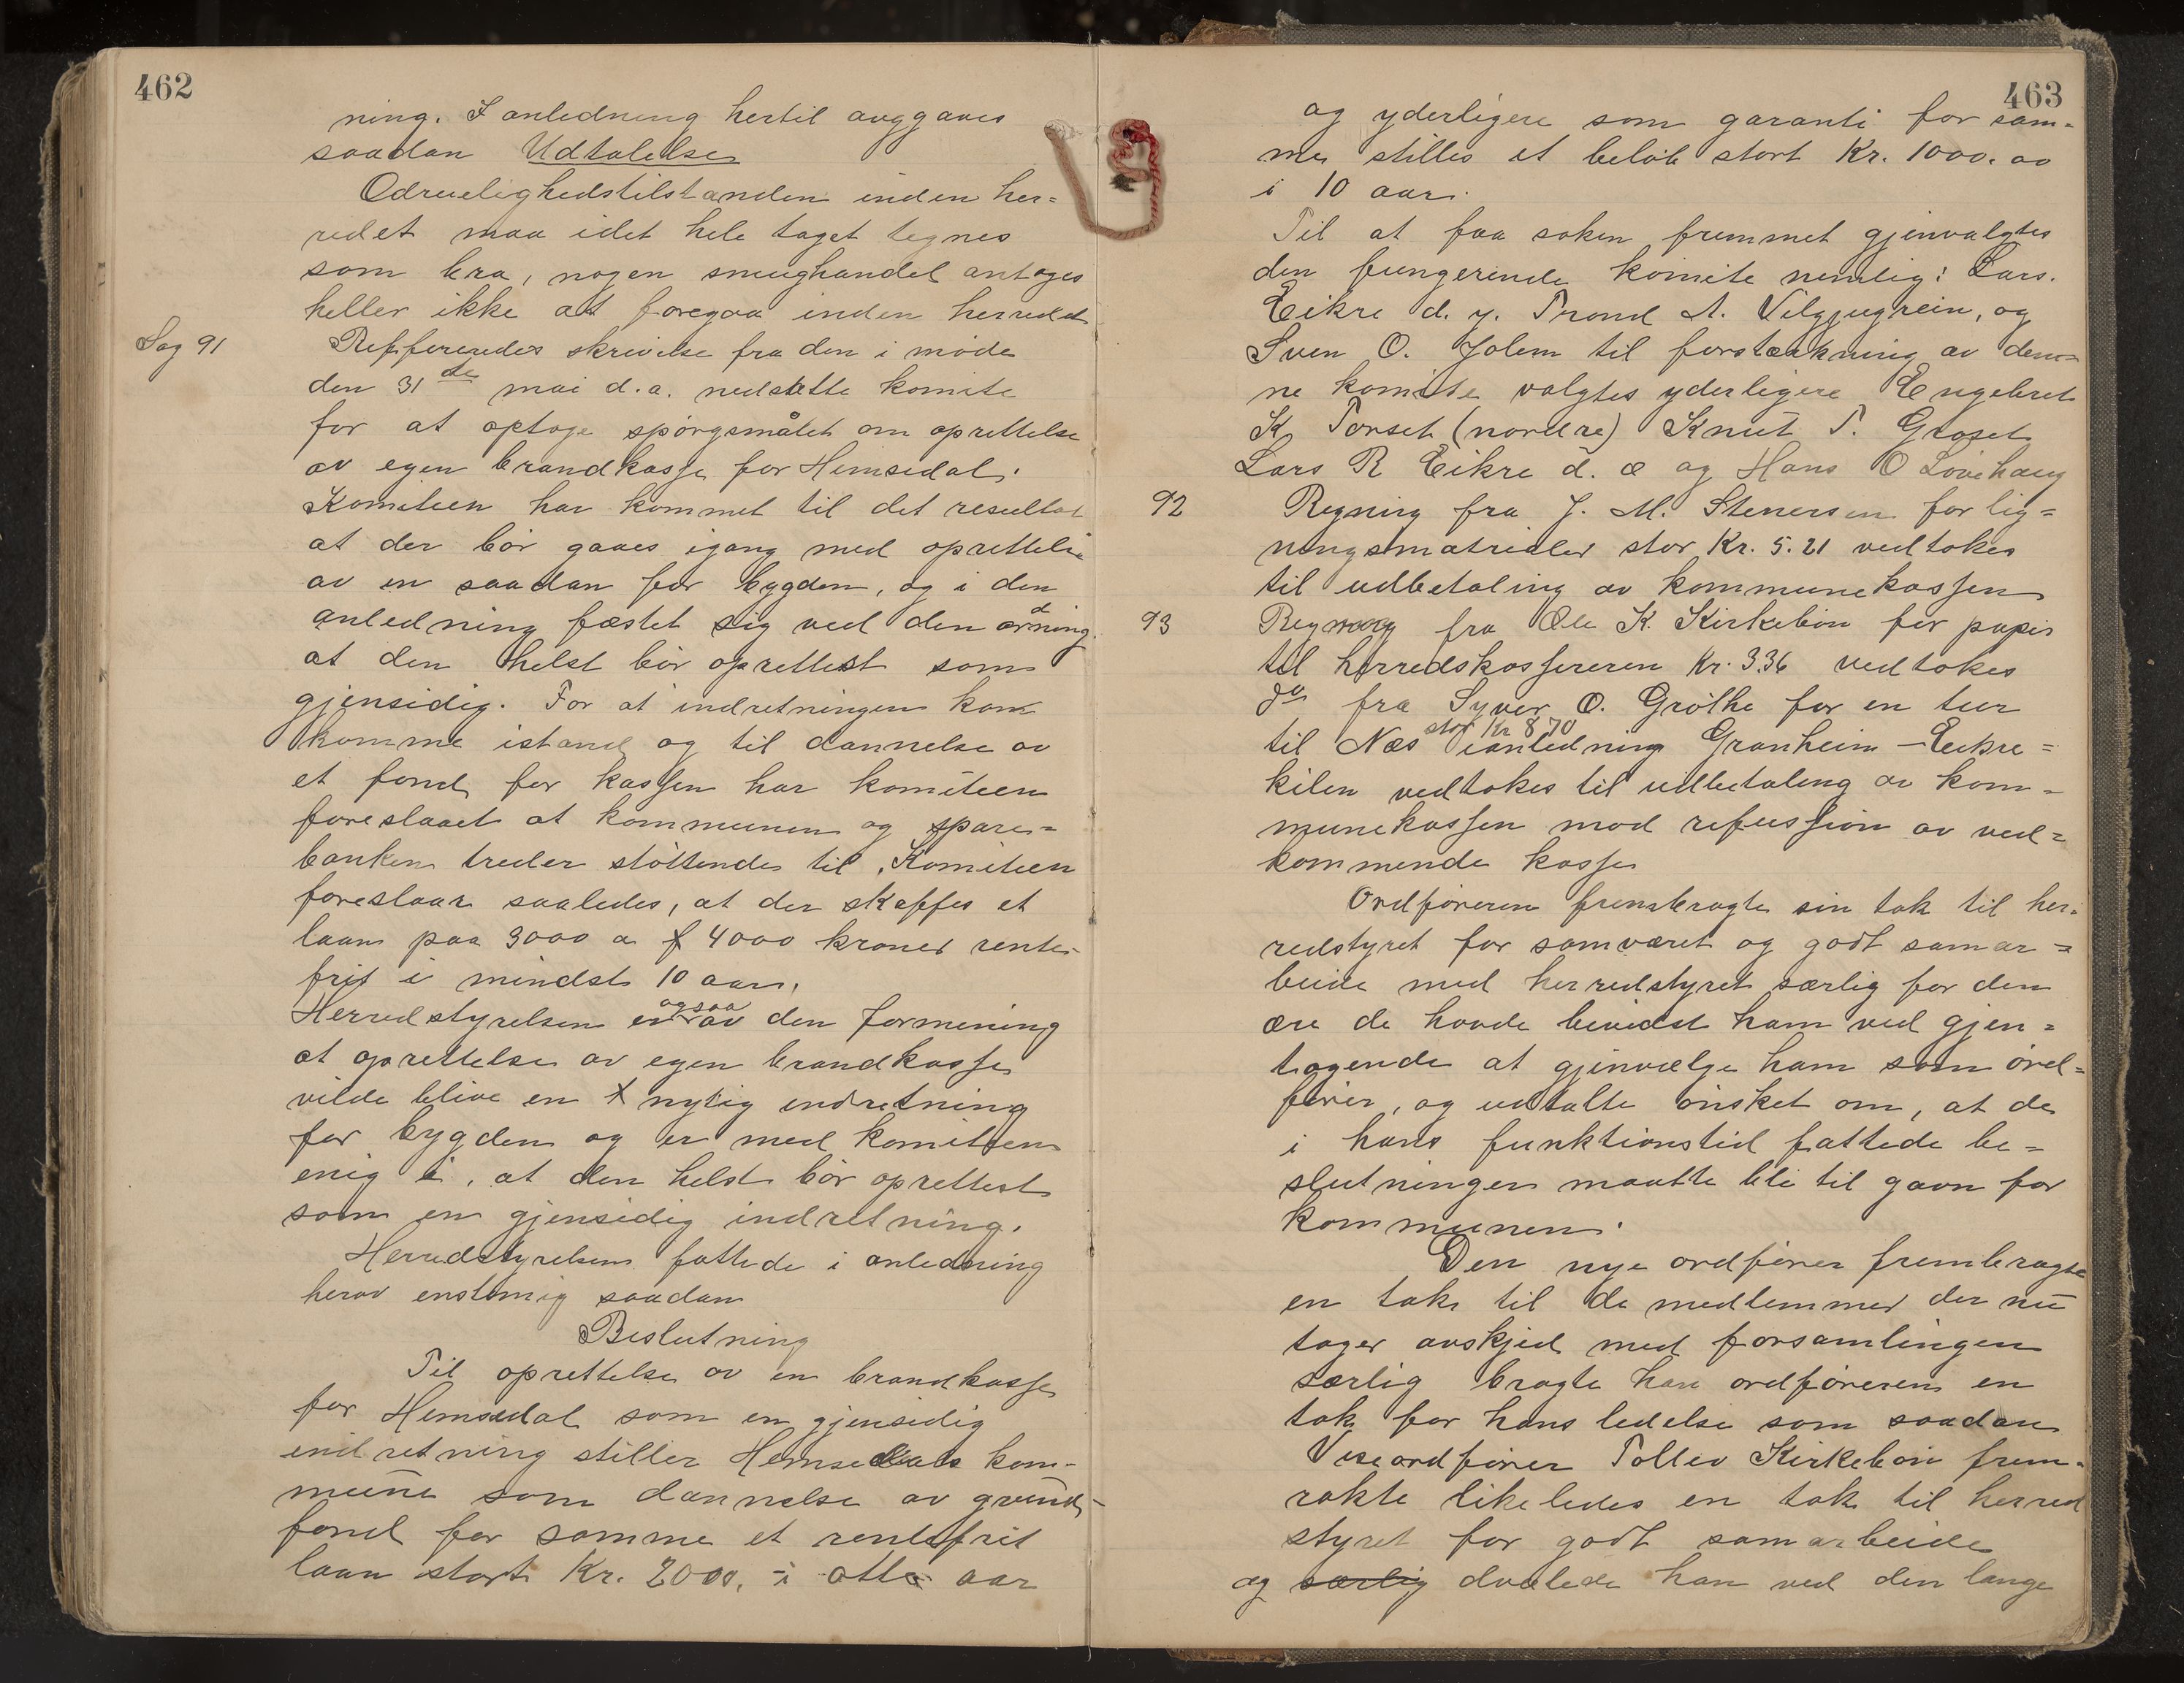 462
ning. I anledning hertil avggaves
saadan Udtalelse
Odruelighedstilstanden inden her=
redet maa idet hele taget tegnes
som bra, nogen smughandel antages
heller ikke at foregaa inden herredet
Sag 91
Reffereredes skrivelse fra den i møde
den 31 de mai d.a. nedsatte komite
for at optage spørgsmålet om oprettelse
av egen brandkasse for Hemsedal.
Komiteen har kommet til det resultat
at der bør gaaes igang med oprettelse
av en saadan for bygden, og i den
anledning fæstet sig ved den ordning
at den helst bør oprettest som
gjensidig. For at indretningen kan
komme istand og til dannelse av
et fond for kassen har komiteen
foreslaaet at kommunen og spare=
banken træder støttende til. Komiteen
foreslaar saaledes, at der skaffes et
laan paa 3000 a 4000 kroner rente-
frit i mindst 10 aar.
Herredstyrelsen er ogsaa av den formening
at oprettelse av egen brandkasse
vilde blive en nytig indretning
for bygden og er med komiteen
enig i, at den helst bør oprettest
som en gjensidig indretning.
Herredstyrelsen fattede i anledning
herav enstemig saadan
Beslutning
Til oprettelse av en brandkasse
for Hemsedal som en gjensidig
indretning stiller Hemsedals kom-
mune som dannelse av grund-
fond for samme et rentefrit
laan stort Kr. 2000. i otte aar
463
og yderligere som garanti for sam=
me stilles et beløb stort Kr. 1000.00
i 10 aar.
Til at faa saken fremmet gjenvalgtes
den fungerende komite nemlig: Lars.
Eikre d. y. Trond A. Vilgjugrein, og
Sven O. Jolem til forstærkning av den=
ne komite valgtes yderligere Engebret
K Torset (nordre) Knut T. Groset
Lars R Eikre d. æ og Hans O Løvehaug
92
Regning fra J. M. Stenersen for lig=
ningsmatrieler stor Kr. 5.21 vedtokes
til udbetaling av kommunekassen
93
Regning fra Ole K. Kirkebøn for papir
til herredskassereren Kr. 3.36 vedtokes
do fra Syver O. Grøthe for en tur
til Næs stor Kr 8 70 ianledning Granheim – Eikre=
kilen vedtokes til udbetaling av kom-
munekassen mod refussion av ved=
kommende kasse
Ordføreren frembragte sin tak til her=
redstyret for samværet og godt samar=
beide med herredstyret særlig for den
ære de havde bevidst ham ved gjen=
tagende at gjenvælge ham som ord=
fører, og udtalte ønsket om, at de
i hans funktionstid fattede be=
slutninger maatte bli til gavn for
kommunen.
Den nye ordfører frembragte
en tak til de medlemmer der nu
tager avskjed med forsamlingen
særlig bragte han ordføreren en
tak for hans ledelse som saadan
Viseordfører Tollev Kirkebøn frem-
rakte likeledes en tak til herred
styret for godt samarbeide
og særlig dvælede han ved den lange